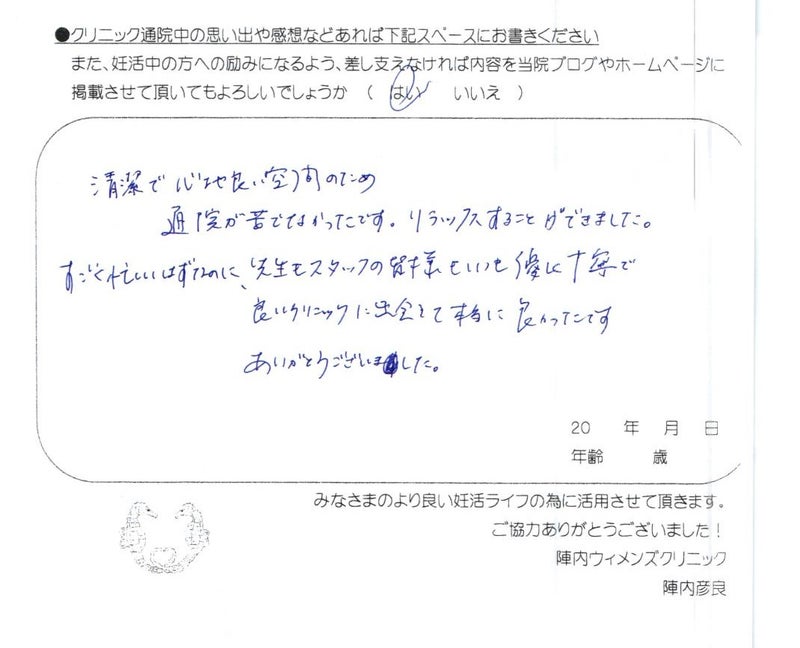 ●クリニック通院中の思い出や感想などあれば下記スペースにお書きください
また、妊活中の方への励みになるよう、差し支えなければ内容を当院ブログやホームページに
掲載させて頂いてもよろしいでしょうか （ はい いいえ ）
清潔で心地良い空間のため
通院が苦でなかったです。リラックスすることができました。
すごく忙しいはずなのに、先生もスタッフの皆様もいつも優しく丁寧で
良いクリニックに出会えて本当に良かったです
ありがとうございました。
20 年 月 日
年齢 歳
みなさまのより良い妊活ライフの為に活用させて頂きます。
ご協力ありがとうございました！
陣内ウィメンズクリニック
陣内彦良